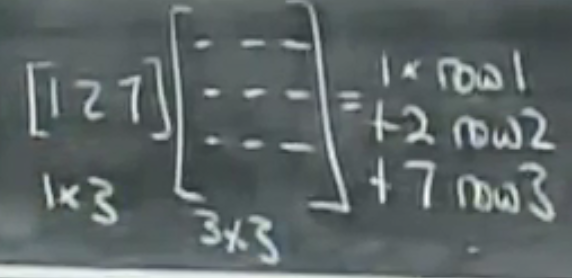 [1 2 7] [- - - = 1 × row1
- - - +2 row2
- - -] +7 row3
1×3
3×3